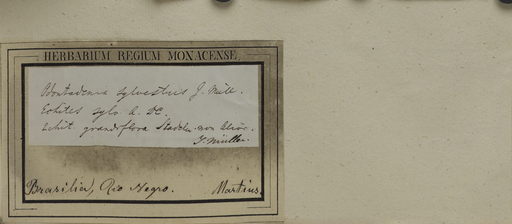 HERBARIUM REGIUM MONACENSE
Odontadenia sylvestris J. Müll.
Echites sylv. A. DC.
Echit. grandiflora Stadelm. non
J. Müller.
Brasilia, Rio Negro. Martius.